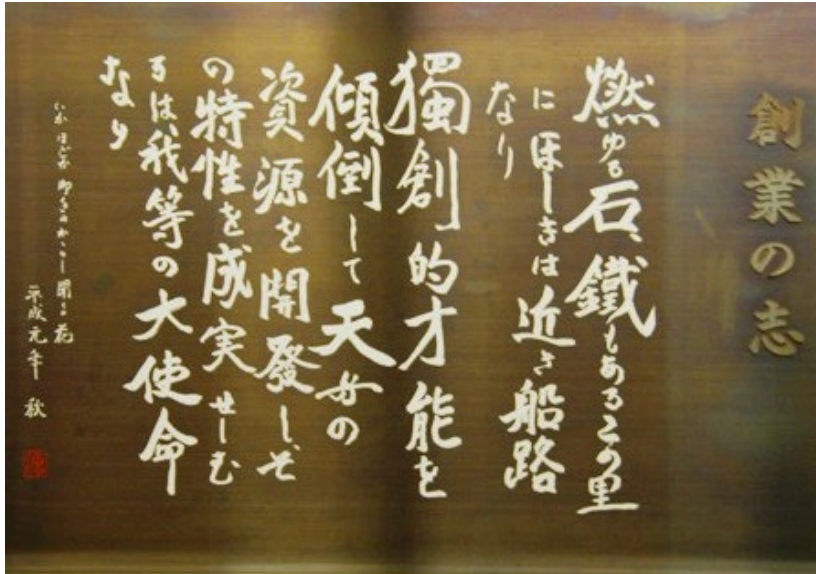 創業の志
燃ゆる石、鐵もあるこの里
にほしきは近き船路
なり
獨創的才能を
傾倒して天与の
資源を開發しそ
の特性を成実せしむ
るは、我等の大使命
なり
花
平成元年 秋